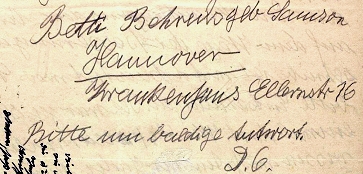 Betti Behrens geb Samson
Hannover
Krankenhaus Ellernstr 16
Bitte um baldige Antwort.
D. O.